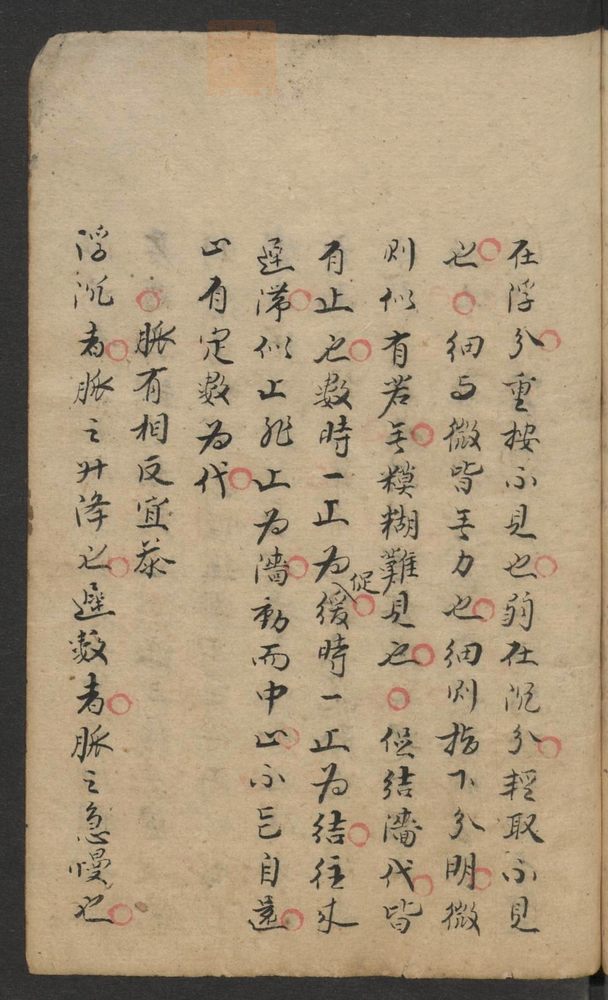 在浮分重按不見也弱在沉分輕取不見
也細与微皆旡力也细则指下分明微
则似有若旡糢糊難見也促結濇代皆
有止也數時一止为促緩時一止为结往来
遲滞似止非止为濇動而中止不能自還
止有定數为代
脈有相反宜叅
浮沉者脈之升降也遲数者脈之急慢也